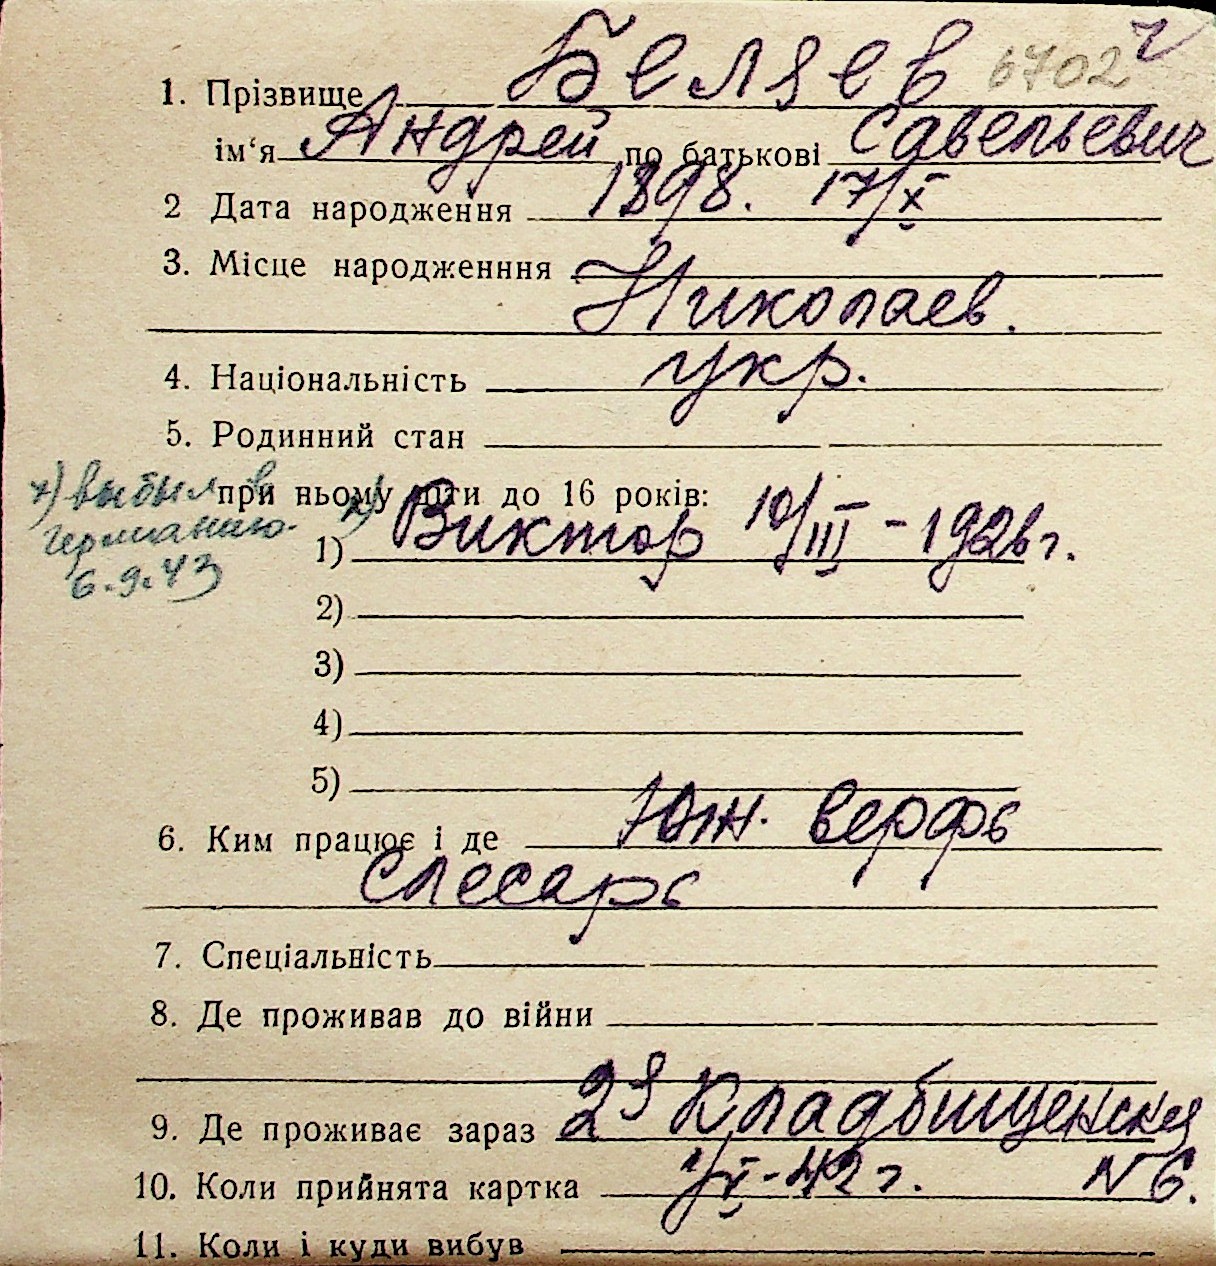 1. Прізвище Беляев 6702 ч
ім‘я Андрей по батькові Савельевич
2 Дата народження 1898. 17/X
3. Місце народженння
Николаев.
4. Національність укр.
5. Родинний стан
х) выбыл в при ньому діти до 16 років:
германию. 1) х) Виктор 10/III - 1926 г.
6.9.43
2)
3)
4)
5)
6. Ким працює і де Юж. верфь
слесарь
7. Спеціальність
8. Де проживав до війни
9. Де проживає зараз 2я Кладбищенская
10. Коли прийнята картка 1/X-42 г. N 6.
11. Коли і куди вибув